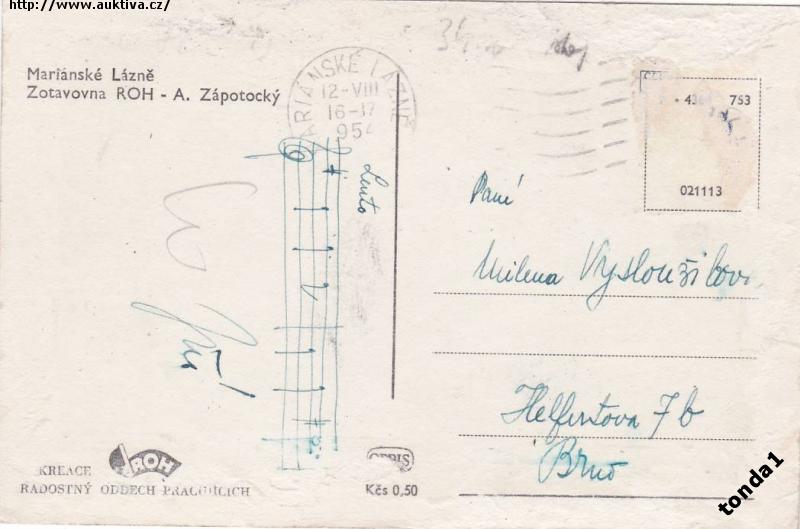 http://www.auktiva.cz/
Mariánské Lázně
Zotavovna ROH - A. Zápotocký
MARIÁNSKÉ LÁZNĚ
12-VIII
16-17
954
753
021113
Lento
Paní
Milena Vysloužilov
Helfertova 7b
Brno
KREACE
ROH
RADOSTNÝ ODDECH PRACUJÍCÍCH
ORBIS
Kčs 0,50
tonda1